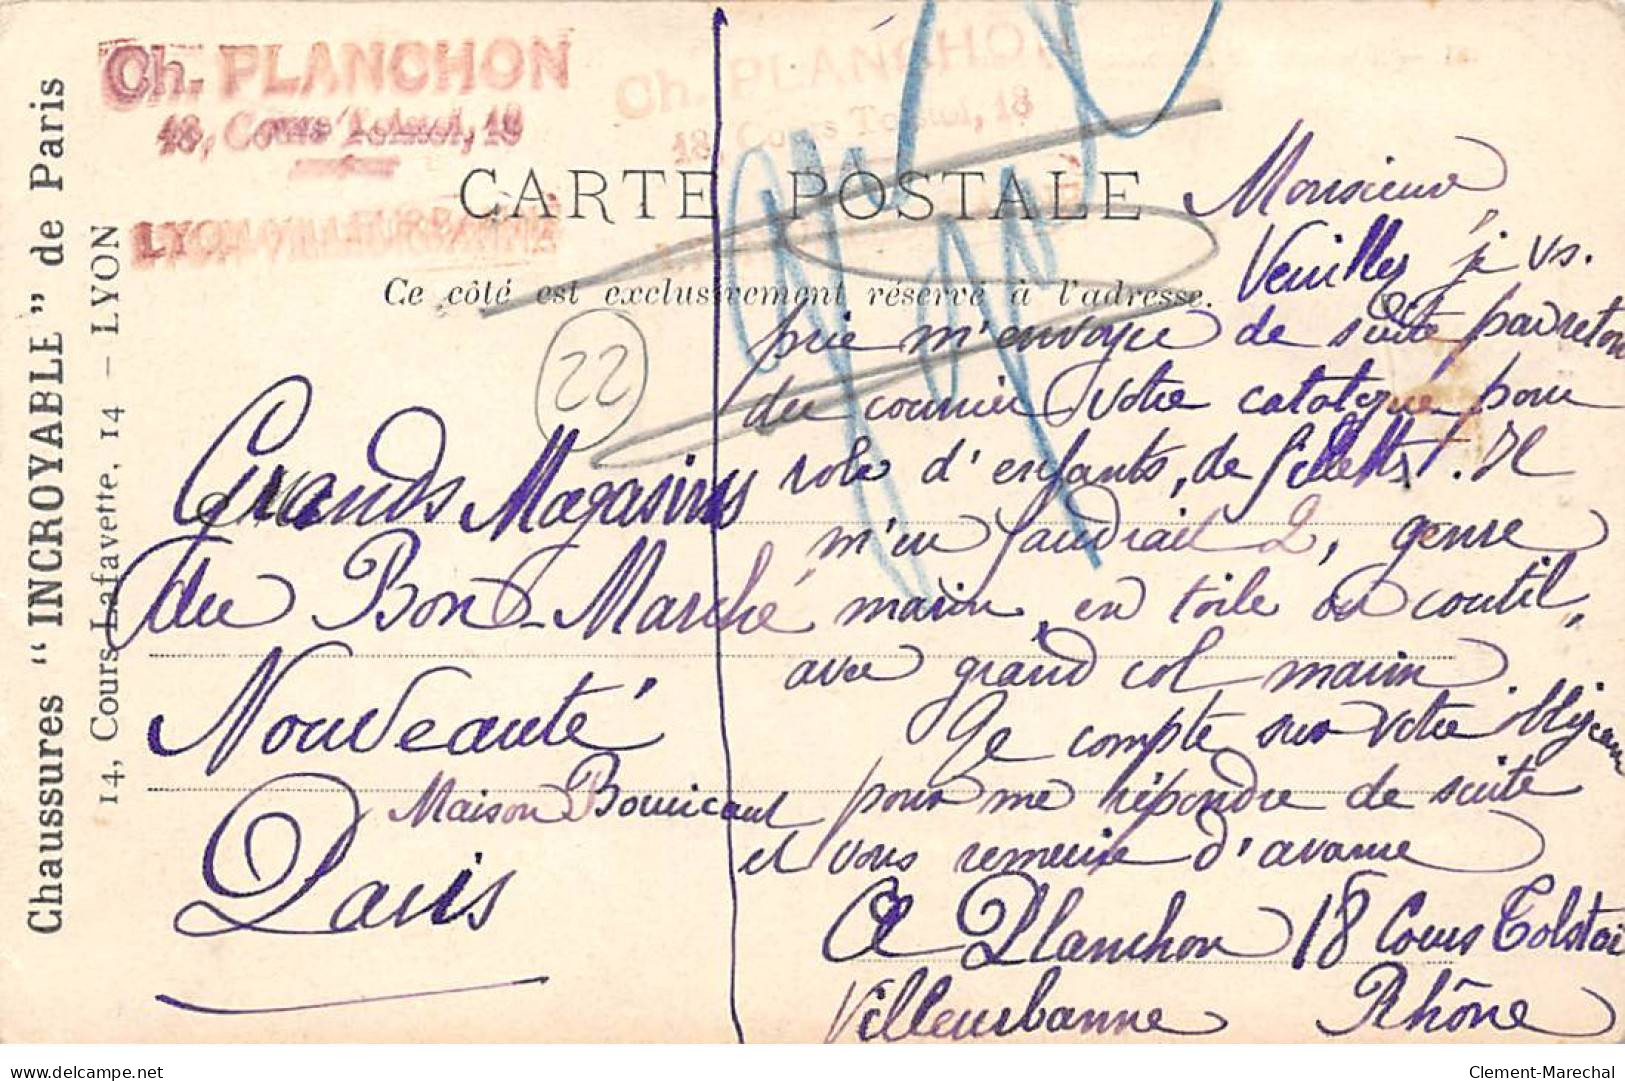 Chaussures "INCROYABLE" de Paris
14, Cours Lafayette, 14 - LYON
Ch. PLANCHON
18, Cours Tolstoï, 18
LYON-VILLEURBANNE
Ch. PLANCHON
18, Cours Tolstoï, 18
CARTE POSTALE
Ce côté est exclusivement réservé à l'adresse.
22
Grands Magasins
du Bon-Marché
Nouveauté
Maison Boucicaut
Paris
Monsieur
Veuillez je vs.
prie m'envoyer de suite par retour
du courrier votre catalogue pour
robe d'enfants, de fillettes. Il
m'en faudrait 2, genre
marin, en toile ou coutil,
avec grand col marin.
Je compte sur votre obligean
pour me répondre de suite
et vous remercie d'avance
Planchon 18 Cours Tolstoi
Villeurbanne Rhône
Clement-Marechal
delcampe.net